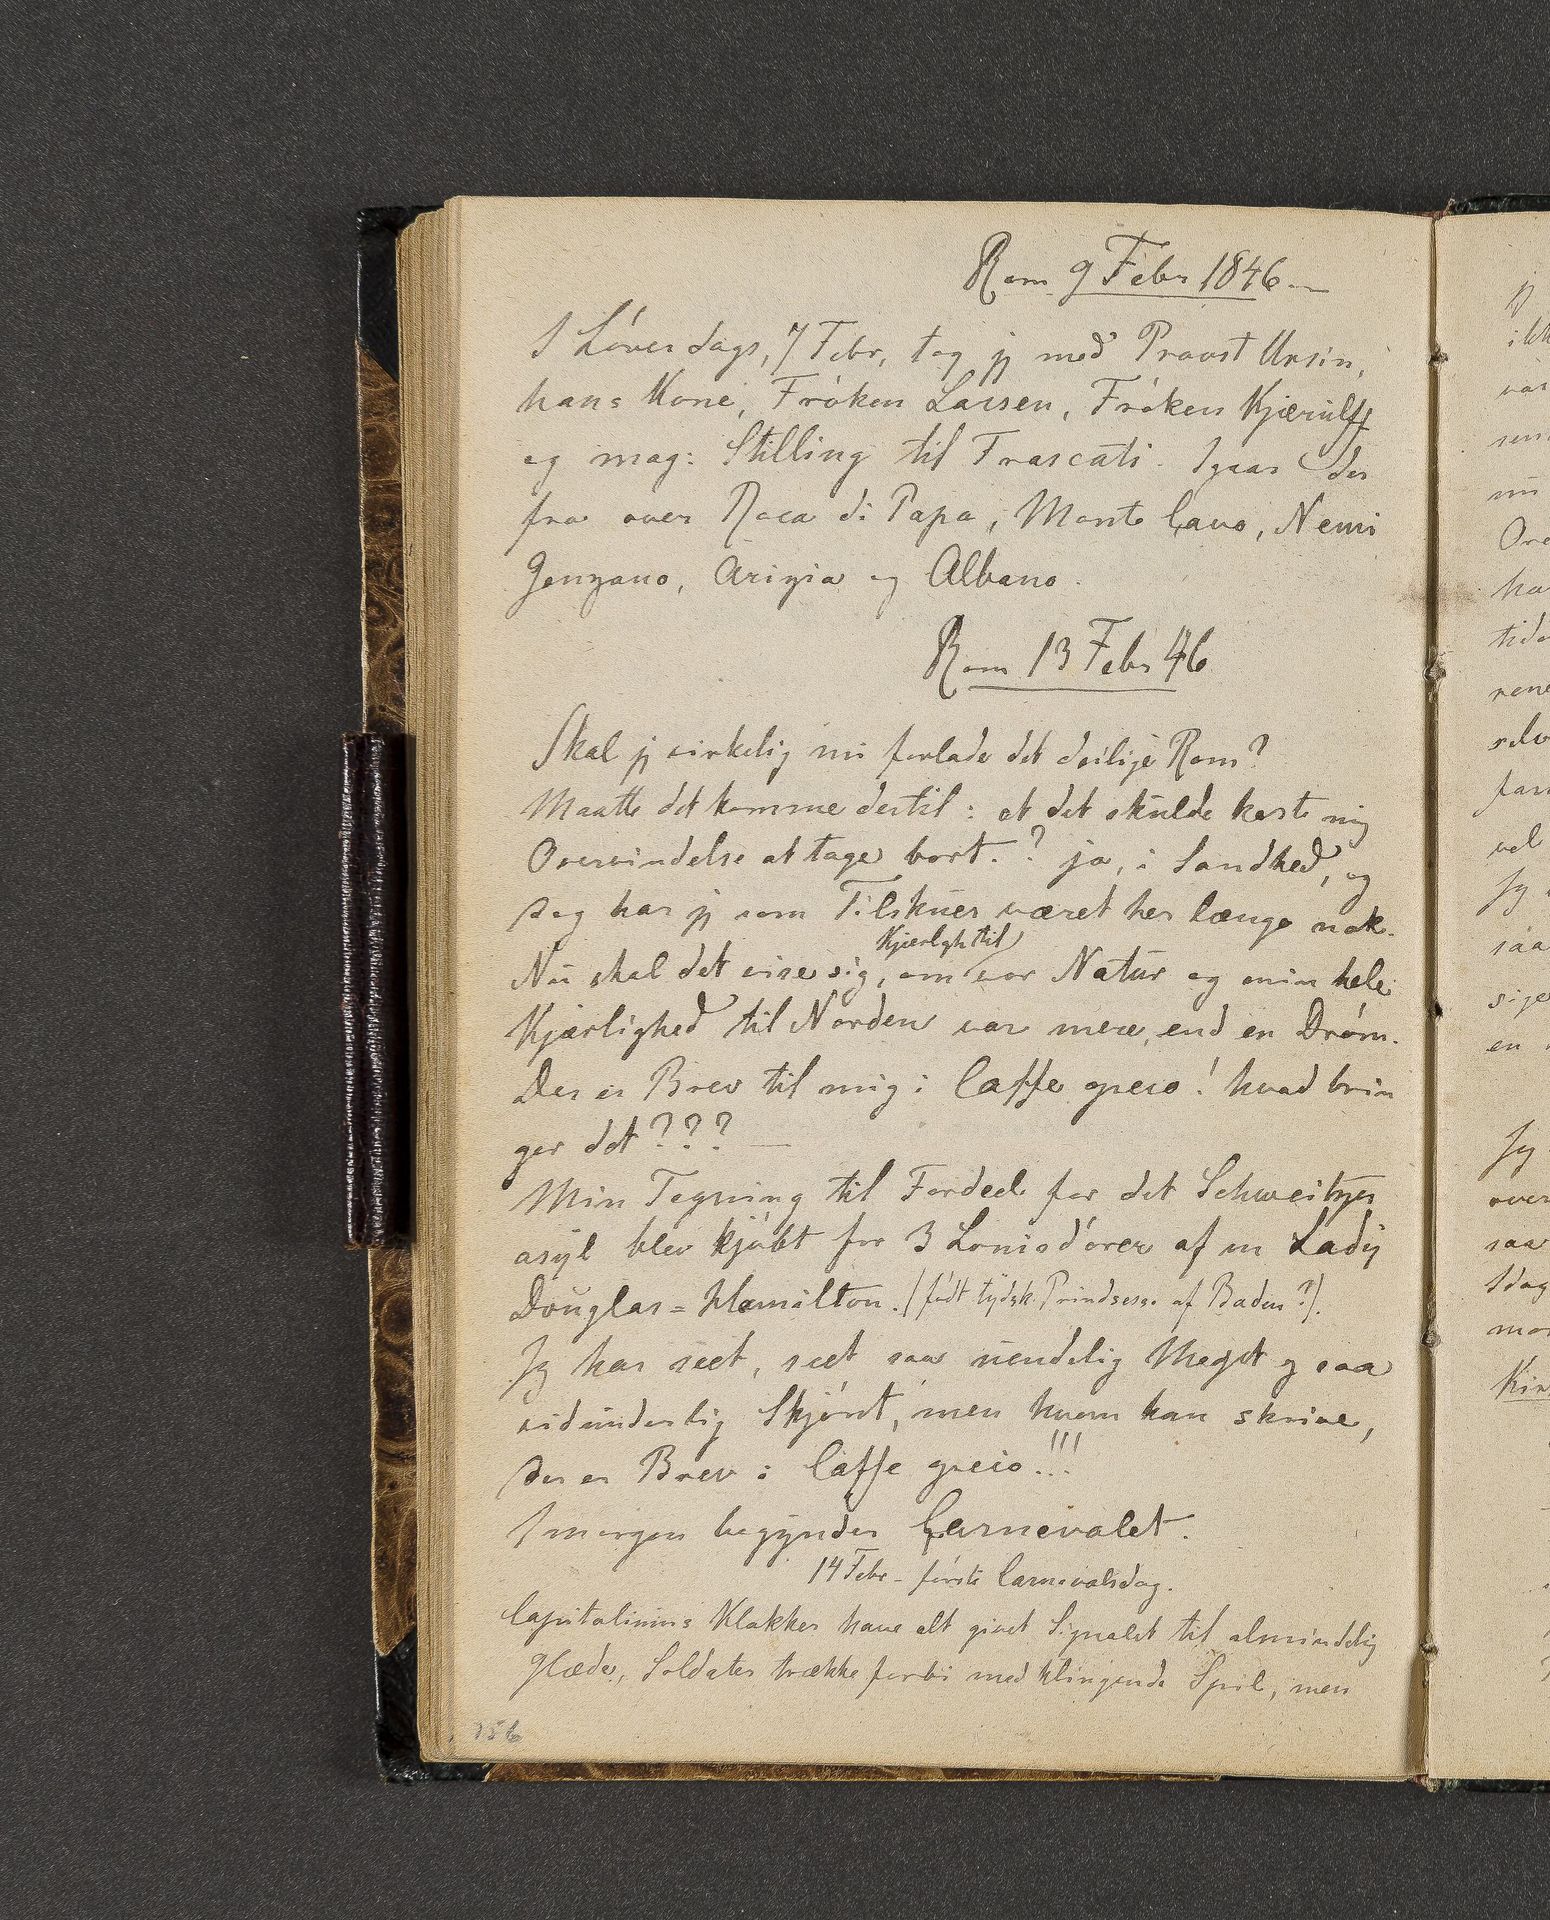 Rom 9 Febr 1846.—
I Löverdags, 7 Febr, tog jg med Provst Ursin,
hans Kone, Fröken Larsen, Fröken Kjærulff
og mag: Stilling til Frascati. Igaar der
fra over Roca di Papa, Monte Cavo, Nemi
Genzano, Arizia og Albano.
Rom 13 Febr 46
Skal jg virkelig nu forlade det deilige Rom?
Maatte det komme dertil: at det skulde koste mig
Overvindelse at tage bort.? ja, i Sandhed, og
dog har jg som Tilskuer været her længe nok.
Kjærligh til
Nu skal det vise sig, om vor Natur og min hele
Kjærlighed til Norden var mere, end en Dröm.
Der er Brev til mig i Caffe greco! hvad brin
ger det??? —
Min Tegning til Fordeel for det Schweitzer
asyl blev kjöbt for 3 Louisd'orer af en Lady
Douglas=Hamilton. (födt tydsk Prindsesse af Baden?).
Jg har seet, seet saa uendelig Meget og saa
vidunderlig Skjönt, men hvem kan skrive,
der er Brev i Caffe greco!!!
Imorgen begynder Carnevalet.
14 Febr - förste Carnevalsdag.
Capitoliums Klokker have alt givet Signalet til almindelig
Glæde, Soldater trække forbi med klingende Spil, men
156